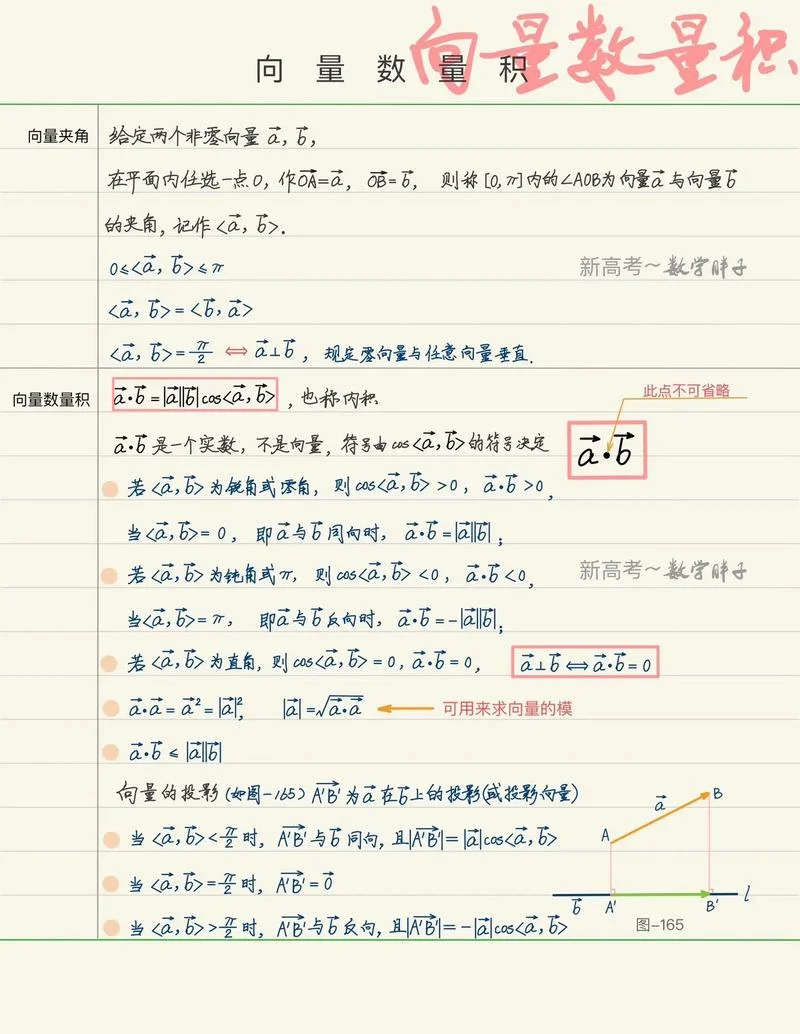 向量数量积
向量数量积
向量夹角
给定两个非零向量 a⃗, b⃗,
在平面内任选一点O, 作OA⃗=a⃗, OB⃗=b⃗, 则称[0,π]内的∠AOB为向量a⃗与向量b⃗
的夹角, 记作<a⃗, b⃗>.
0≤<a⃗, b⃗>≤π
新高考~数学胖子
<a⃗, b⃗>=<b⃗, a⃗>
<a⃗, b⃗>=π/2 ⇔ a⃗⊥b⃗, 规定零向量与任意向量垂直.
向量数量积
a⃗·b⃗=|a⃗||b⃗|cos<a⃗, b⃗>, 也称内积
此点不可省略
a⃗·b⃗是一个实数, 不是向量, 符号由cos<a⃗, b⃗>的符号决定
a⃗·b⃗
若<a⃗, b⃗>为锐角或零角, 则cos<a⃗, b⃗>>0, a⃗·b⃗>0,
当<a⃗, b⃗>=0, 即a⃗与b⃗同向时, a⃗·b⃗=|a⃗||b⃗|;
若<a⃗, b⃗>为钝角或π, 则cos<a⃗, b⃗><0, a⃗·b⃗<0,
新高考~数学胖子
当<a⃗, b⃗>=π, 即a⃗与b⃗反向时, a⃗·b⃗=-|a⃗||b⃗|;
若<a⃗, b⃗>为直角, 则cos<a⃗, b⃗>=0, a⃗·b⃗=0, a⃗⊥b⃗⇔a⃗·b⃗=0
a⃗·a⃗=a⃗²=|a⃗|², |a⃗|=√(a⃗·a⃗) 可用来求向量的模
a⃗·b⃗≤|a⃗||b⃗|
向量的投影(如图-165) A'B'⃗为a⃗在b⃗上的投影(或投影向量)
当<a⃗, b⃗><π/2时, A'B'⃗与b⃗同向, 且|A'B'⃗|=|a⃗|cos<a⃗, b⃗>
当<a⃗, b⃗>=π/2时, A'B'⃗=0⃗
当<a⃗, b⃗>>π/2时, A'B'⃗与b⃗反向, 且|A'B'⃗|=-|a⃗|cos<a⃗, b⃗>
a⃗
B
A
l
b⃗
A'
B'
图-165